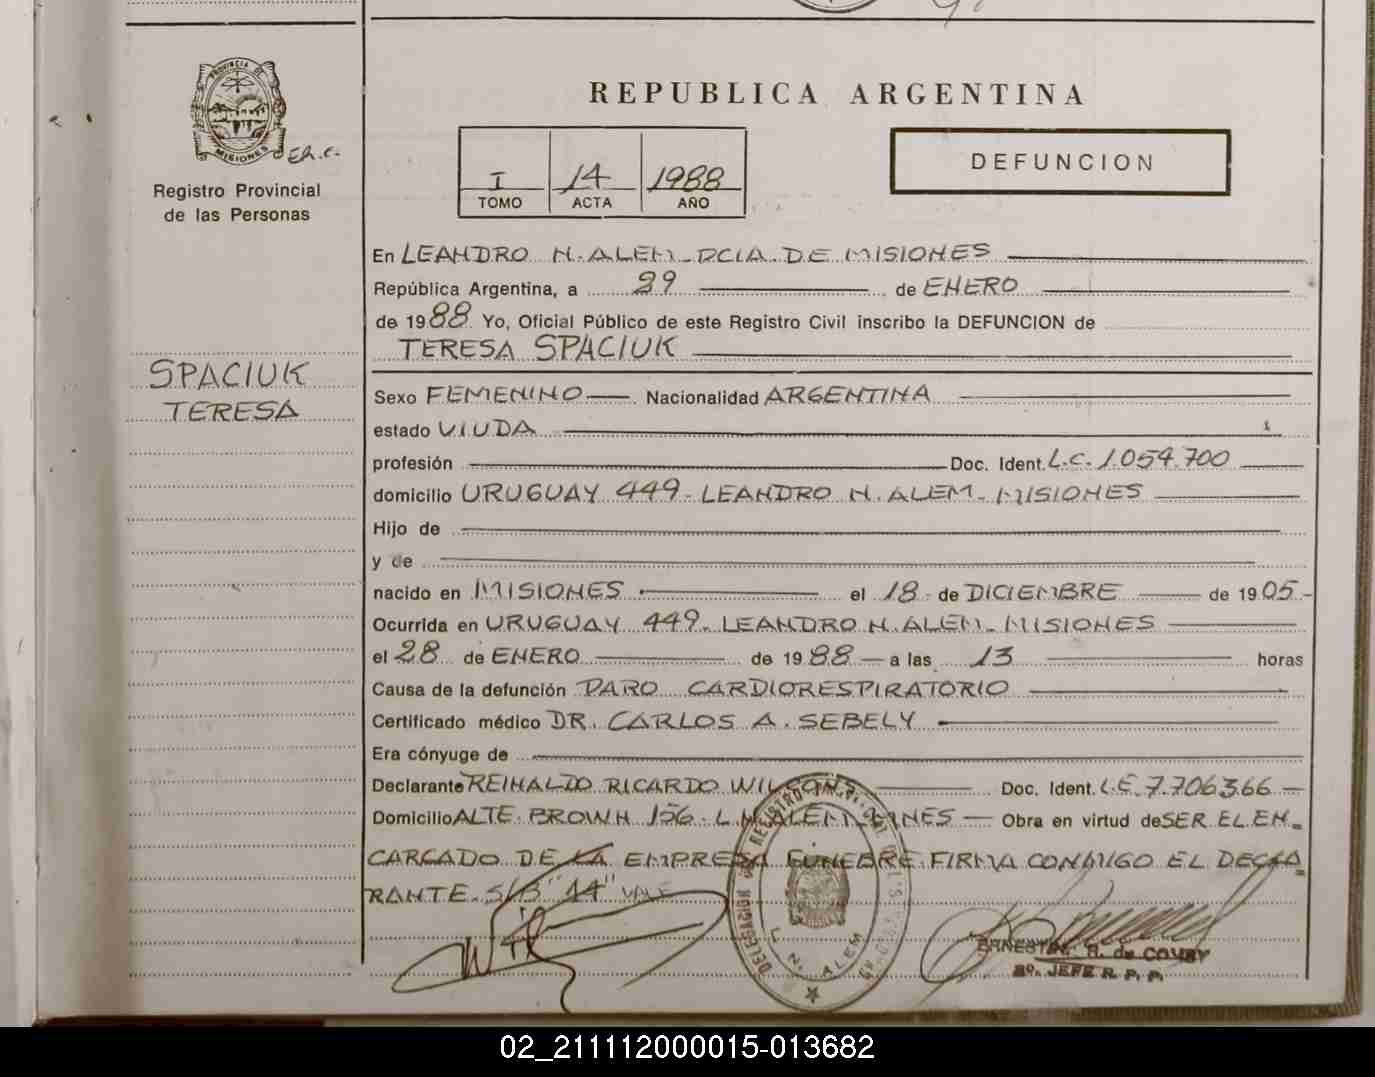 REPUBLICA ARGENTINA
PROVINCIA DE
MISIONES
Registro Provincial
de las Personas
I 14 1988
TOMO ACTA AÑO
DEFUNCION
En LEANDRO N. ALEM - PCIA. DE MISIONES
República Argentina, a 29 de ENERO
de 1988 Yo, Oficial Público de este Registro Civil inscribo la DEFUNCION de
TERESA SPACIUK
SPACIUK
TERESA
Sexo FEMENINO Nacionalidad ARGENTINA
estado VIUDA
profesión Doc. Ident. L.C. 1.054.700
domicilio URUGUAY 449 - LEANDRO N. ALEM - MISIONES
Hijo de
y de
nacido en MISIONES el 18 de DICIEMBRE de 1905
Ocurrida en URUGUAY 449 - LEANDRO N. ALEM - MISIONES
el 28 de ENERO de 1988 a las 13 horas
Causa de la defunción PARO CARDIORESPIRATORIO
Certificado médico DR. CARLOS A. SEBELY
Era cónyuge de
Declarante REINALDO RICARDO Doc. Ident. L.E. 7.706.366
Domicilio ALTE. BROWN 156 - L.N. ALEM - Obra en virtud de SER EL EN-
CARGADO DE LA EMPRESA FUNEBRE. FIRMA CONMIGO EL DECLA
RANTE. S/B "14" VALE
DELEGACION REGISTRO
L. N. ALEM
R. de
2º. JEFE R. P. P.
02_211112000015-013682